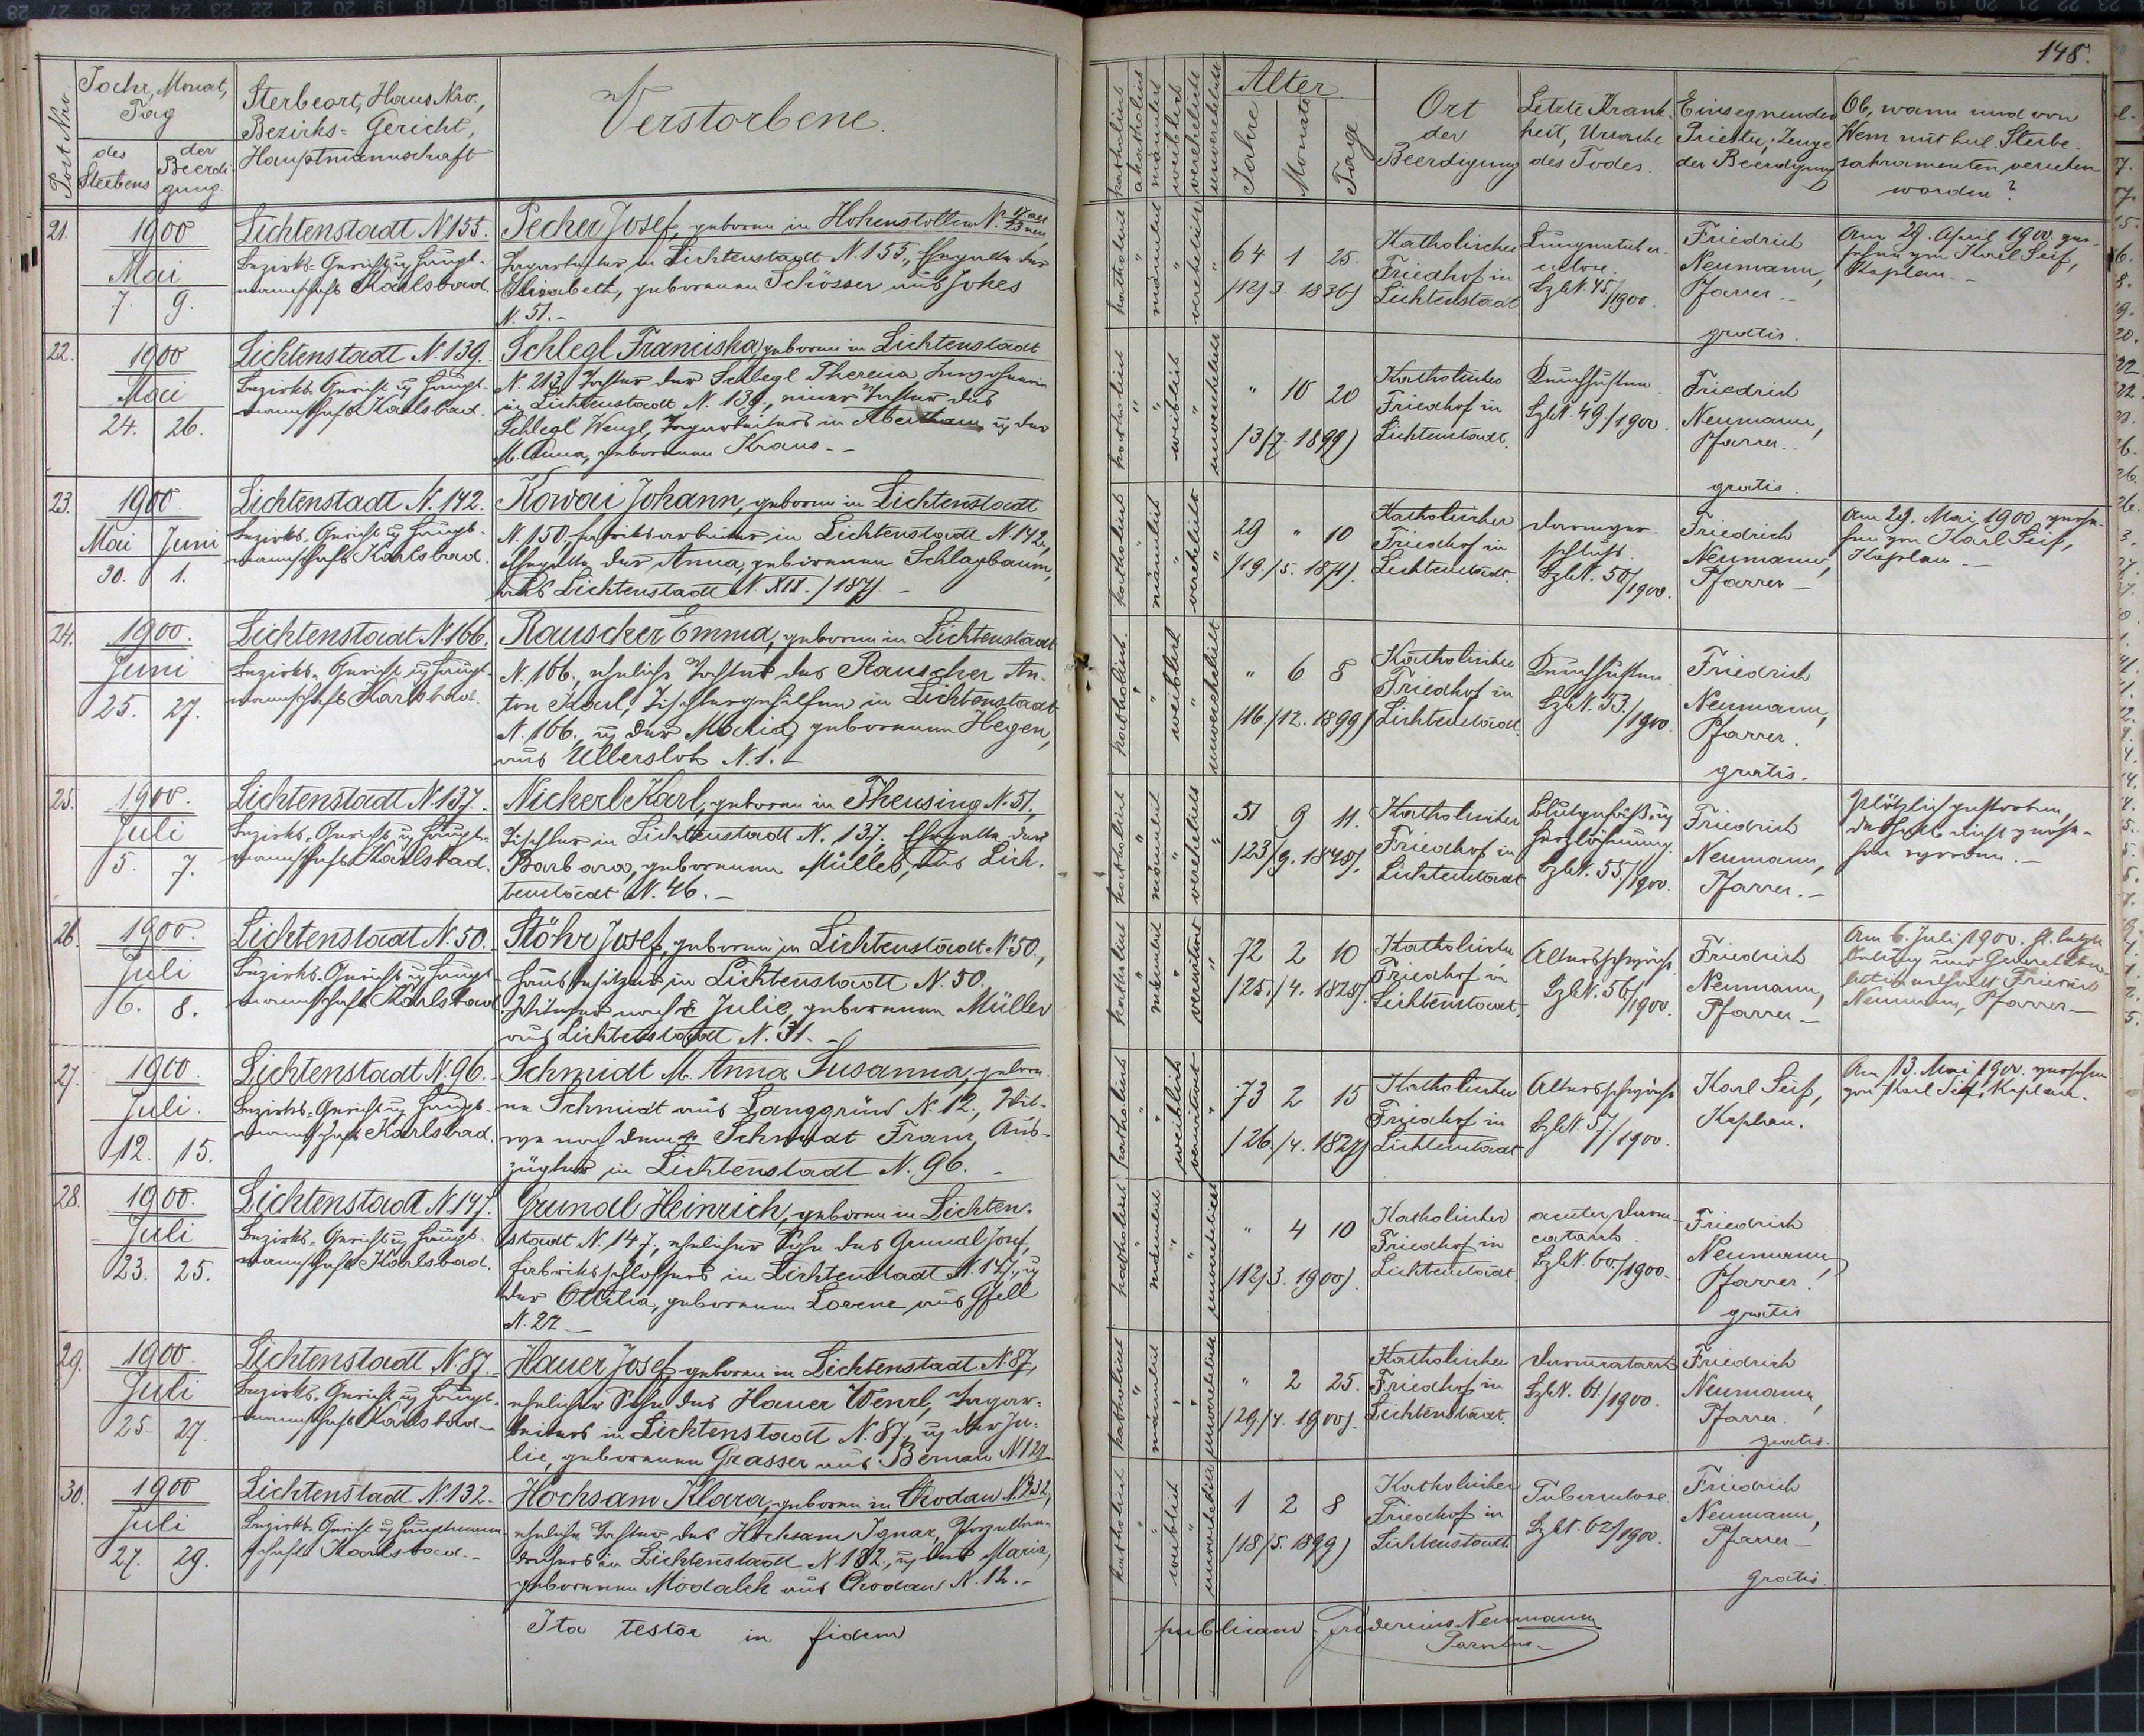 148.
Post Nro.
Jahr, Monat,
Tag
des
Sterbens
der
Beerdi-
gung.
Sterbeort, Haus Nro.,
Bezirks-Gericht,
Hauptmannschaft
Verstorbene.
katholisch
akatholisch
männlich
weiblich
verehelicht
unverehelicht
Alter
Jahre
Monate
Tage
Ort
der
Beerdigung
Letzte Krank-
heit, Ursache
des Todes.
Einsegnender
Priester, Zeuge
der Beerdigung
Ob, wann und von
Wem mit heil. Sterbe-
sakramenten versehen
worden?
21.
1900
Mai
7. 9.
Lichtenstadt N. 155.
Bezirks-Gericht u Haupt-
mannschaft Karlsbad.
Pecher Josef, geboren in Hohenstollen N. 17 alt 23 neu,
Tagarbeiter in Lichtenstadt N. 155., Ehegatte der
Elisabeth, geborenen Schösser aus Jokes
N. 51.-
katholisch " männlich " verehelicht "
64 1 25.
/12/3. 1836/
Katholischer
Friedhof in
Lichtenstadt
Lungentuber-
culose.
Szl N. 45./1900.
Friedrich
Neumann,
Pfarrer.-
Am 29. April 1900 ver-
sehen von Karl Seif,
Kaplan.-
22.
1900
Mai
24. 26.
Lichtenstadt N. 139.
Bezirks-Gericht u Haupt-
mannschaft Karlsbad.
Schlegl Franciska, geboren in Lichtenstadt
N. 213, Tochter der Schlegl Theresia
in Lichtenstadt N. 139, einer Tochter des
Schlegl Wenzl, Tagarbeiters in Abertham u der
M. Anna, geborenen Kraus.-
katholisch " " weiblich " unverehelicht
" 10 20
/3/7. 1899/
Katholischer
Friedhof in
Lichtenstadt.
Szl N. 49./1900.
gratis.
Friedrich
Neumann,
Pfarrer.-
23.
1900
Mai Juni
30. 1.
Lichtenstadt N. 142.
Bezirks-Gericht u Haupt-
mannschaft Karlsbad.
Kowai Johann, geboren in Lichtenstadt
N. 150, Fabriksarbeiter in Lichtenstadt N. 142,
Ehegatte der Anna, geborenen Schlagbaum,
aus Lichtenstadt N.
katholisch " männlich " verehelicht "
29 " 10
/19./5. 1871/
Katholischer
Friedhof in
Lichtenstadt.
Szl N. 50/1900.
gratis.
Friedrich
Neumann,
Pfarrer-
Am 29. Mai 1900 verse-
hen von Karl Seif,
Kaplan.-
24.
1900.
Juni
25. 27.
Lichtenstadt N. 166.
Bezirks-Gericht u Haupt-
mannschaft Karlsbad.
Rauscher Emma, geboren in Lichtenstadt
N. 166., eheliche Tochter des Rauscher An-
ton Karl, Tischlergehilfen in Lichtenstadt
N. 166. u der Maria, geborenen Hegen,
aus Ullersloh N. 1.-
katholisch " " weiblich " unverehelicht
" 6 8
/16./12. 1899/
Katholischer
Friedhof in
Lichtenstadt.
Szl N. 53./1900.
Friedrich
Neumann,
Pfarrer.
gratis.
25.
1900.
Juli
5. 7.
Lichtenstadt N. 137.
Bezirks-Gericht u Haupt-
mannschaft Karlsbad.
Nickerl Karl, geboren in Theusing N. 51,
Tischler in Lichtenstadt N. 137, Ehegatte der
Barbara, geborenen Müller, aus Lich-
tenstadt N. 46.-
katholisch " männlich " verehelicht "
51 9 11.
/23/9. 1848/.
Katholischer
Friedhof in
Lichtenstadt
Szl N. 55./1900.
Friedrich
Neumann,
Pfarrer.-
Plötzlich gestorben,
deshalb nicht verse-
hen worden.-
26.
1900.
Juli
6. 8.
Lichtenstadt N. 50.
Bezirks-Gericht u Haupt-
mannschaft Karlsbad
Stöhr Josef, geboren in Lichtenstadt N. 50.,
Hausbesitzer in Lichtenstadt N. 50.
Witwer nach † Julie, geborenen Müller
aus Lichtenstadt N. 31.-
katholisch " männlich " verwitwet "
72 2 10
/25./4. 1828/.
Katholischer
Friedhof in
Lichtenstadt.
Altersschwäche.
Szl N. 56/1900.
Friedrich
Neumann,
Pfarrer-
Am 6. Juli 1900. hl. letzte
Ölung und General-
Friedrich
Neumann, Pfarrer-
27.
1900.
Juli.
12. 15.
Lichtenstadt N. 96.
Bezirks-Gericht u Haupt-
mannschaft Karlsbad.
Schmidt M. Anna Susanna, gebore-
ne Schmidt aus Langgrün N. 12., Wit-
we nach dem † Schmidt Franz, Aus-
zügler in Lichtenstadt N. 96.-
katholisch " " weiblich verwitwet "
73 2 15
/26./4. 1827/
Katholischer
Friedhof in
Lichtenstadt
Altersschwäche
Szl N. 57./1900.
Karl Seif,
Kaplan.
Am 13. Mai 1900. versehen
von Karl Seif, Kaplan.
28.
1900.
Juli
23. 25.
Lichtenstadt N. 147.
Bezirks-Gericht u Haupt-
mannschaft Karlsbad.
Grundl Heinrich, geboren in Lichten-
stadt N. 147., ehelicher Sohn des Grundl Josef,
Fabriksschlossers in Lichtenstadt N. 147., u
der Ottilia, geborenen Lorenz aus Gfell
N. 27.-
katholisch " männlich " " unverehelicht
" 4 10
/12/3. 1900/.
Katholischer
Friedhof in
Lichtenstadt.
acuter Darm-
catarrh.
Szl N. 60./1900.
Friedrich
Neumann,
Pfarrer.
gratis
29.
1900.
Juli
25. 27.
Lichtenstadt N. 87.
Bezirks-Gericht u Haupt-
mannschaft Karlsbad-
Hauer Josef, geboren in Lichtenstadt N. 87,
ehelicher Sohn des Hauer Wenzl, Tagar-
beiters in Lichtenstadt N. 87, u der Ju-
lie, geborenen Grasser aus Bernau N. 127.
katholisch " männlich " " unverehelicht
" 2 25.
/29./4. 1900/.
Katholischer
Friedhof in
Lichtenstadt.
Darmcatarrh
Szl N. 61./1900.
Friedrich
Neumann,
Pfarrer.
gratis.
30.
1900
Juli
27. 29.
Lichtenstadt N. 132.
Bezirks-Gericht u Hauptmann-
schaft Karlsbad.-
Hochsam Klara, geboren in Chodau N. 232,
eheliche Tochter des Hochsam Ignaz, Porzellan-
drehers in Lichtenstadt N. 132., u der Maria,
geborenen Modalek aus Chodau N. 12.-
katholisch " " weiblich " unverehelicht
1 2 8
/18/5. 1899/
Katholischer
Friedhof in
Lichtenstadt
Tuberculose.
Szl N. 62/1900.
Friedrich
Neumann,
Pfarrer-
gratis.
Ita testor in fidem publicam. Fridericus Neumann
Parochus-